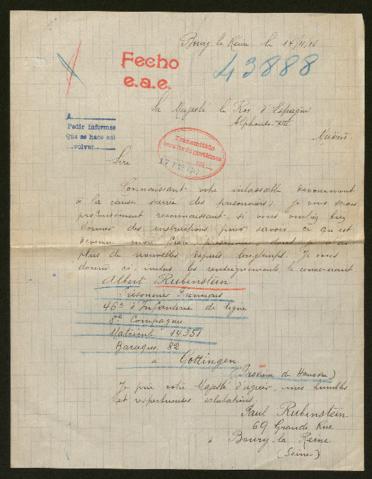 Bourg la Reine le
Fecho
e.a.e.
43888
Sa Majesté le Roi d'Espagne
Alphonse XIII
Madrid
A
Pedir informes
que se hace así
volver
Transmitido
Sire
Connaissant votre inlassable dévouement
à la cause sacrée des prisonniers, je vous serais
profondément reconnaissant si vous vouliez bien
donner des instructions pour savoir ce qu'est
devenu mon frère prisonnier dont je n'ai
plus de nouvelles depuis longtemps. Je vous
donne ci inclus les renseignements le concernant
Albert Rubinstein
Prisonnier Français
46e d'Infanterie de ligne
8e Compagnie
Matricule 14351
Baraque 82
à Gottingen
(Province de Hanovre)
Je prie votre Majesté d'agréer mes humbles
et respectueuses salutations,
Paul Rubinstein
69 Grande Rue
à Bourg la Reine
(Seine)